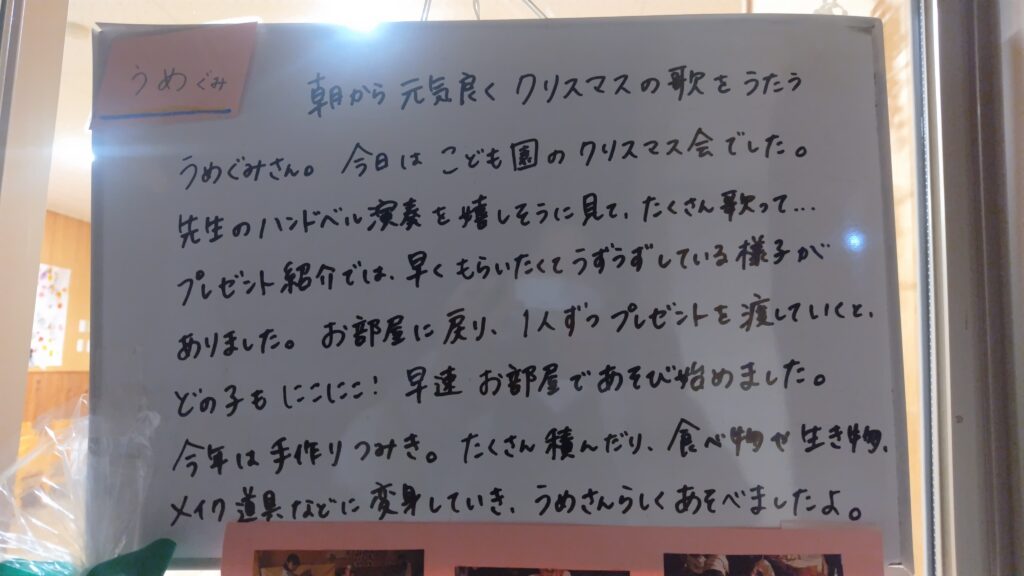 うめぐみ
朝から元気良くクリスマスの歌をうたう
うめぐみさん。今日はこども園のクリスマス会でした。
先生のハンドベル演奏を嬉しそうに見て、たくさん歌って…
プレゼント紹介では、早くもらいたくてうずうずしている様子が
ありました。お部屋に戻り、1人ずつプレゼントを渡していくと、
どの子もにこにこ!早速お部屋であそび始めました。
今年は手作りつみき。たくさん積んだり、食べ物や生き物、
メイク道具などに変身していき、うめさんらしくあそべましたよ。